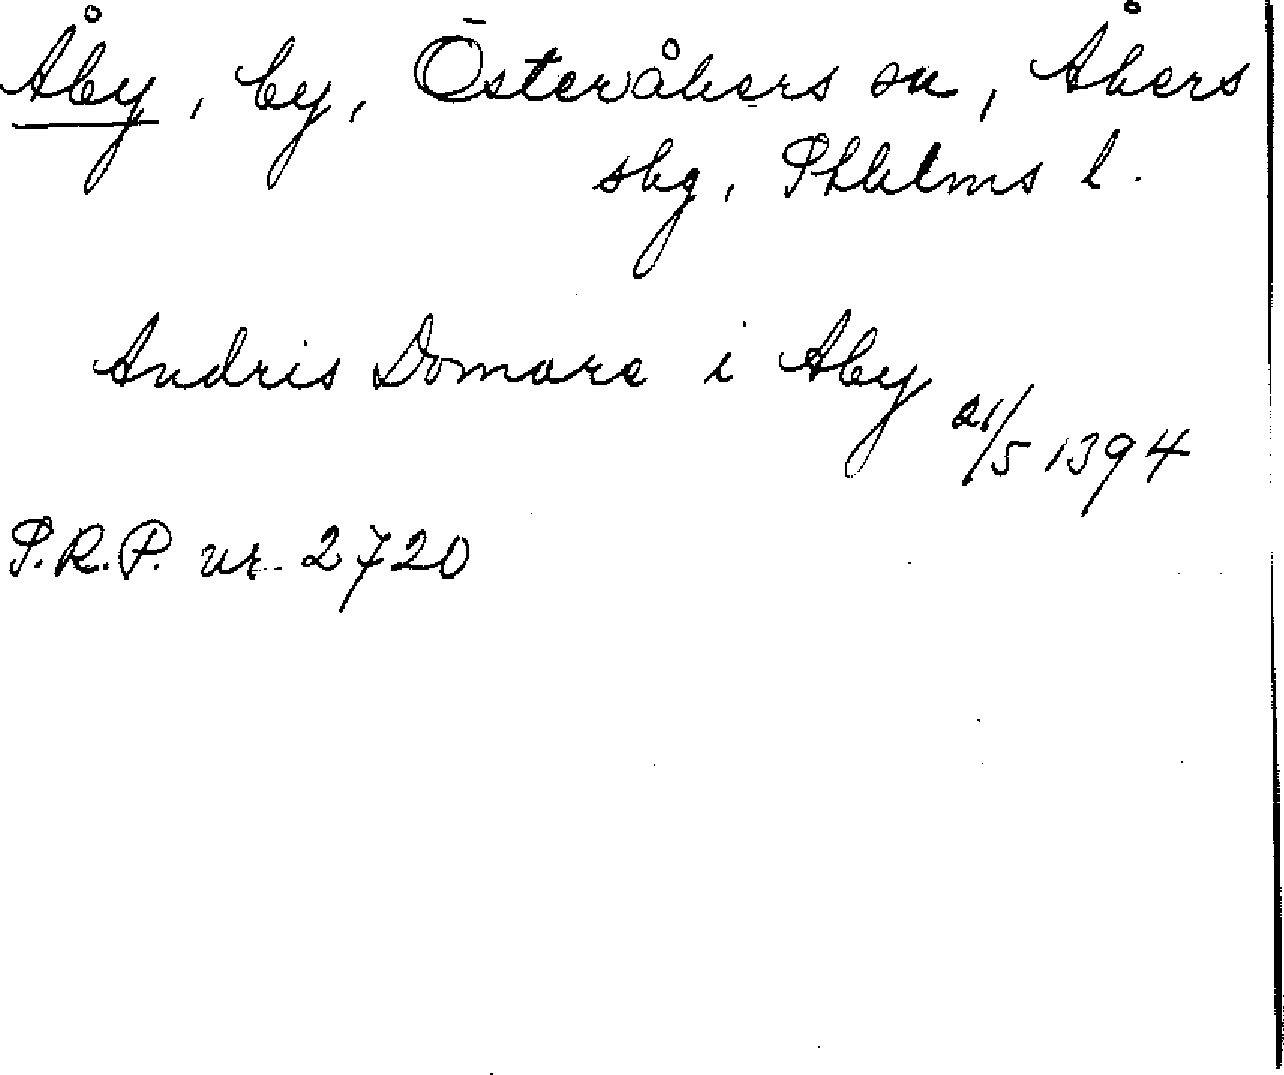 Åby, by, Österåkers sn, Åkers
skg, Sthlms l.
Andris Domare i Aby
21/5 1394
S.R.P. nr. 2720